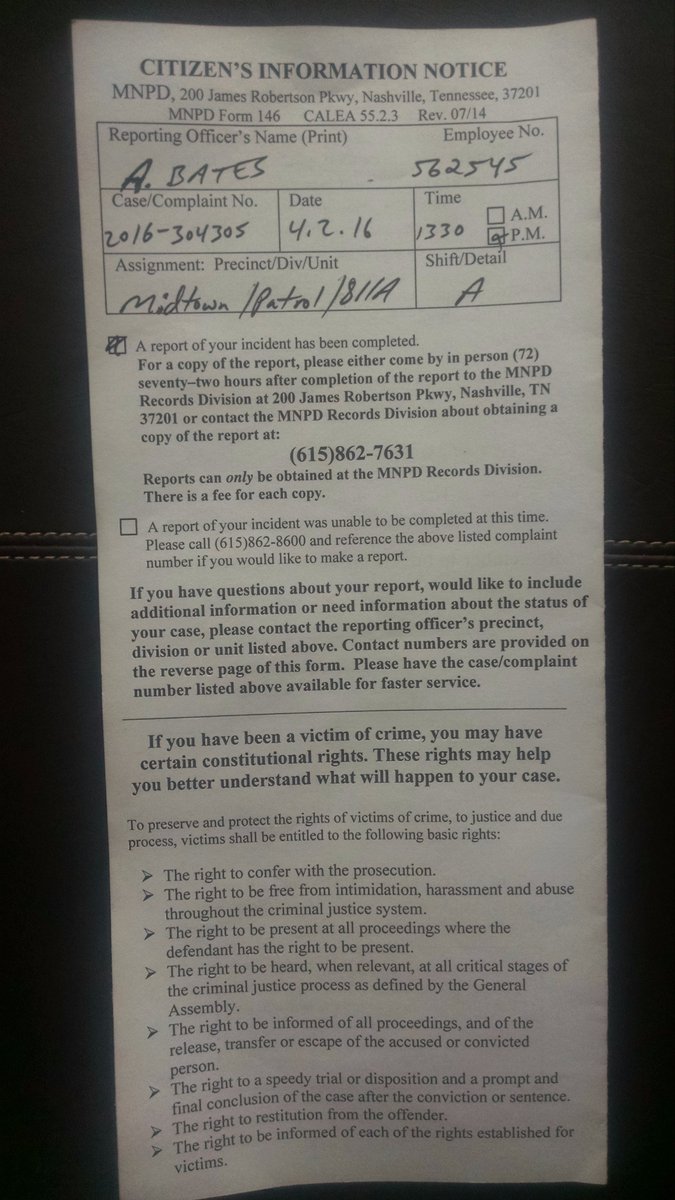 CITIZEN'S INFORMATION NOTICE
MNPD, 200 James Robertson Pkwy, Nashville, Tennessee, 37201
MNPD Form 146 CALEA 55.2.3 Rev. 07/14
Reporting Officer's Name (Print) Employee No.
A. BATES 562545
Case/Complaint No. Date Time
2016-304305 4.2.16 1330 A.M.
P.M.
Assignment: Precinct/Div/Unit Shift/Detail
Midtown/Patrol/811A A
A report of your incident has been completed.
For a copy of the report, please either come by in person (72)
seventy-two hours after completion of the report to the MNPD
Records Division at 200 James Robertson Pkwy, Nashville, TN
37201 or contact the MNPD Records Division about obtaining a
copy of the report at:
(615)862-7631
Reports can only be obtained at the MNPD Records Division.
There is a fee for each copy.
A report of your incident was unable to be completed at this time.
Please call (615)862-8600 and reference the above listed complaint
number if you would like to make a report.
If you have questions about your report, would like to include
additional information or need information about the status of
your case, please contact the reporting officer's precinct,
division or unit listed above. Contact numbers are provided on
the reverse page of this form. Please have the case/complaint
number listed above available for faster service.
If you have been a victim of crime, you may have
certain constitutional rights. These rights may help
you better understand what will happen to your case.
To preserve and protect the rights of victims of crime, to justice and due
process, victims shall be entitled to the following basic rights:
➢ The right to confer with the prosecution.
➢ The right to be free from intimidation, harassment and abuse
throughout the criminal justice system.
➢ The right to be present at all proceedings where the
defendant has the right to be present.
➢ The right to be heard, when relevant, at all critical stages of
the criminal justice process as defined by the General
Assembly.
➢ The right to be informed of all proceedings, and of the
release, transfer or escape of the accused or convicted
person.
➢ The right to a speedy trial or disposition and a prompt and
final conclusion of the case after the conviction or sentence.
➢ The right to restitution from the offender.
➢ The right to be informed of each of the rights established for
victims.